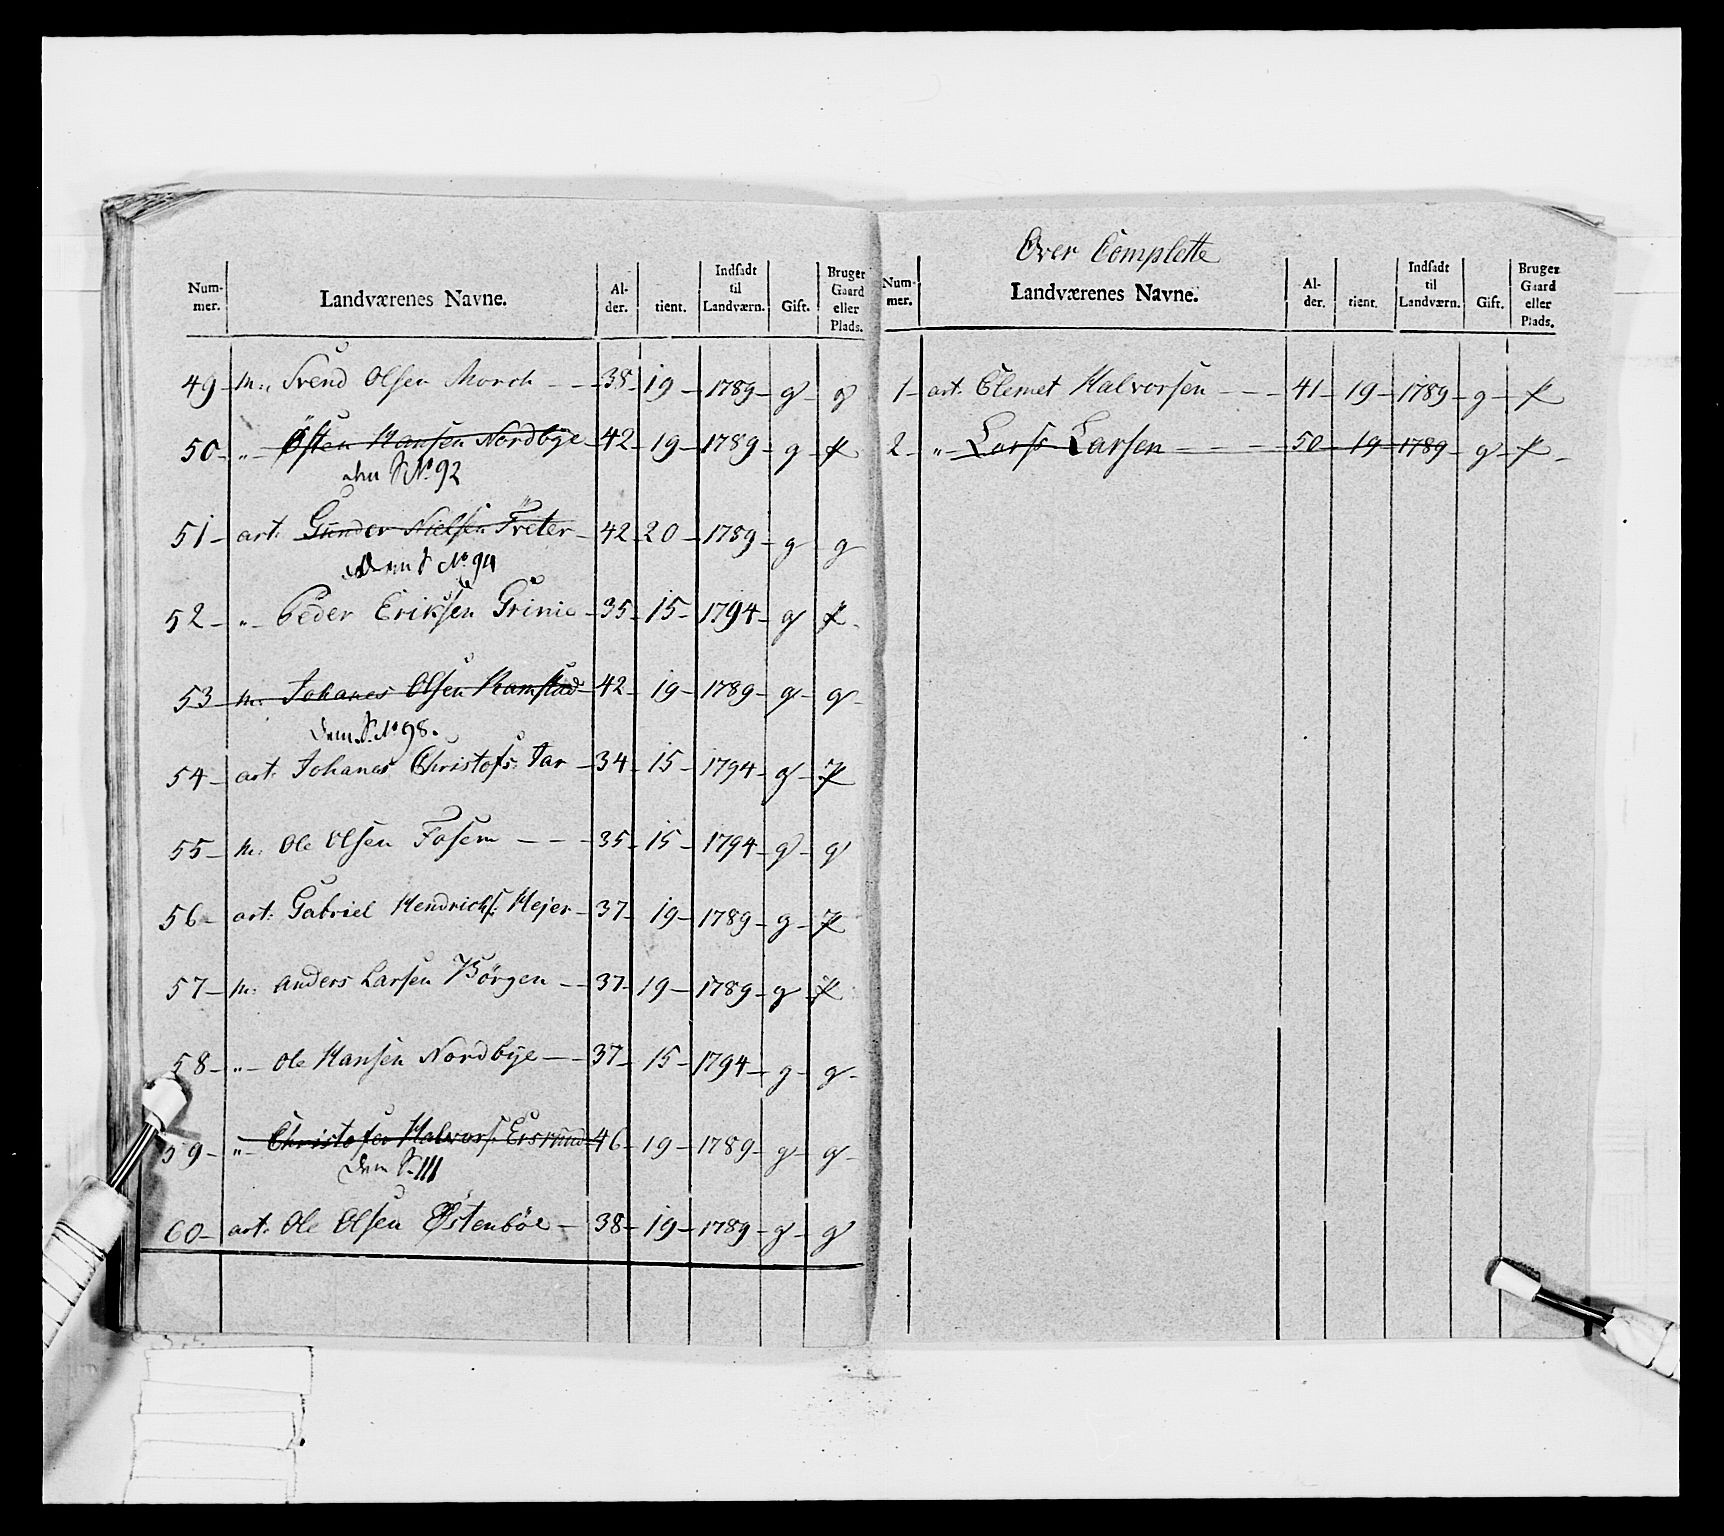 Num-
mer.
Landværenes Navne.
Al-
der.
tient.
Indsadt
til
Landværn.
Gift.
Bruger
Gaard
eller
Plads.
49 – m: Svend Olsen Morch – – 38 – 19 – 1789 – g – g
50 – „ – Östen Hansen Nordbye – 42 – 19 – 1789 – g – p
den S No. 92
51 – art: Gunder Nielsen Freter – 42 – 20 – 1789 – g – g
dem S No. 94
52 – „ – Peder Eriksen Grinie – 35 – 15 – 1794 – g – p –
53 – m: Johanes Olsen Ramstad – 42 – 19 – 1789 – g – g –
dem S. No 98.
54 – art: Johanes Christofs: Jar – 34 – 15 – 1794 – g – p
55 – m: Ole Olsen Fosem – – – 35 – 15 – 1794 – g – g
56 – art: Gabriel Hendrichs: Hejer – 37 – 19 – 1789 – g – p
57 – m: Anders Larsen Börgen – – 37 – 19 – 1789 – g – p
58 – „ – Ole Hansen Nordbÿe – – 37 – 15 – 1794 – g – g –
59 – „ – Christofer Halvors: – 46 – 19 – 1789 – g – g
dem S. 111
60 – art: Ole Olsen Østenböe – 38 – 19 – 1789 – g – g
Over Complette
Num-
mer.
Landværenes Navne.
Al-
der.
tient.
Indsadt
til
Landværn.
Gift.
Bruger
Gaard
eller
Plads.
1 – art. Clemet Halvorsen – – – 41 – 19 – 1789 – g – p
2 – „ – Larss Larsen – – – 50 – 19 – 1789 – g – p –